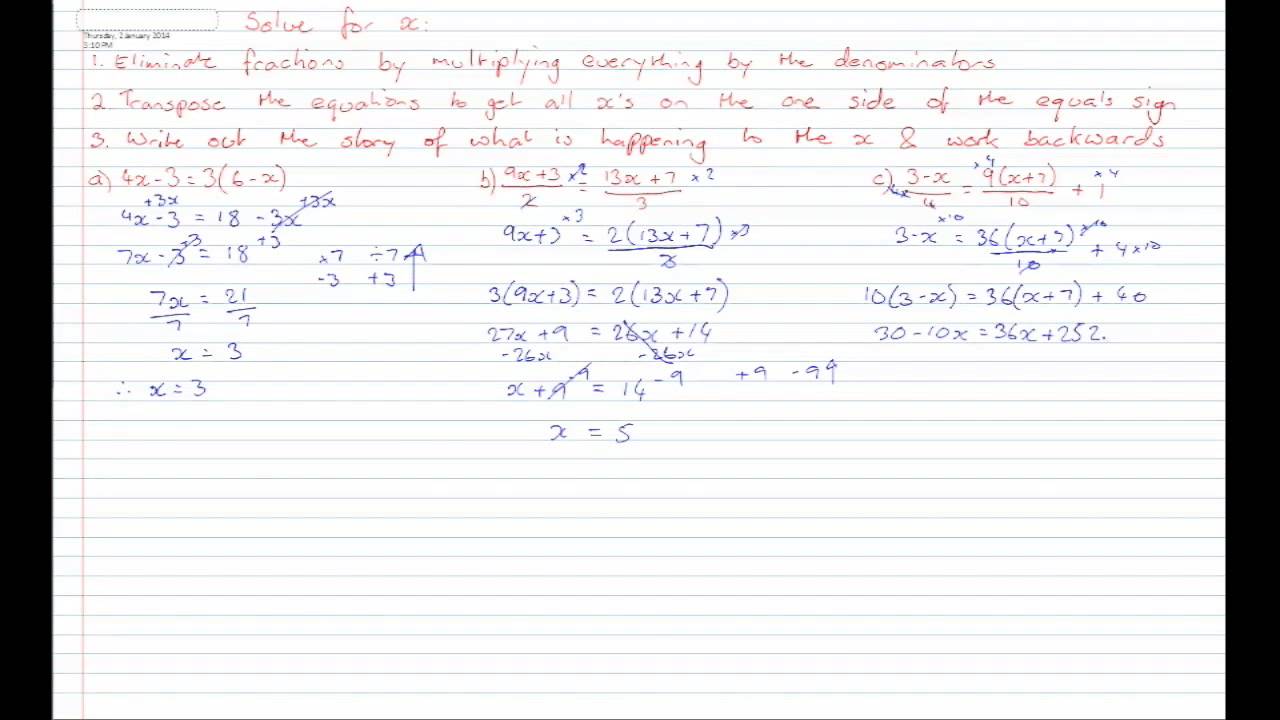 Solve for x:
Thursday, 2 January 2014
3:10 PM
1. Eliminate fractions by multiplying everything by the denominators
2. Transpose the equations to get all x's on the one side of the equals sign
3. Write out the story of what is happening to the x & work backwards
a) 4x - 3 = 3(6 - x)
+3x +3x
4x - 3 = 18 - 3x
+3 +3
7x - 3 = 18
×7 ÷7
-3 +3
7x/7 = 21/7
x = 3
∴ x = 3
b) (9x + 3)/2 ×2 = (13x + 7)/3 ×2
9x + 3 ×3 = 2(13x + 7)/3 ×3
3(9x + 3) = 2(13x + 7)
27x + 9 = 26x + 14
-26x -26x
x + 9 -9 = 14 -9
+9 -9
x = 5
c) (3 - x)/4 = 9(x + 7)/10 ×4 + 1 ×4
3 - x ×10 = 36(x + 7)/10 ×10 + 4 ×10
10(3 - x) = 36(x + 7) + 40
30 - 10x = 36x + 252.